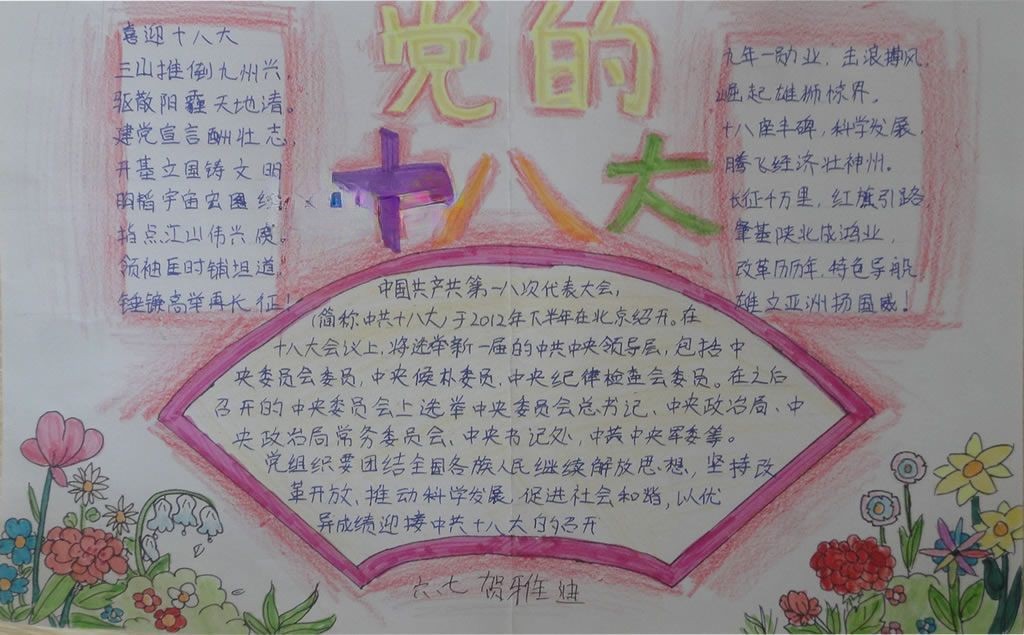 党的
十八大
喜迎十八大
三山推倒九州兴,
驱散阳霾天地清。
建党宣言酬壮志,
开基立国铸文明
明韬宇宙宏图绘,
指点江山伟兴废。
领袖匡时铺坦道,
锤镰高举再长征!
九年一勋业,击浪搏风,
崛起雄狮惊界,
十八座丰碑,科学发展,
腾飞经济壮神州。
长征千万里,红旗引路
肇基陕北成鸿业,
改革历历年,特色导航
雄立亚洲扬国威!
中国共产共第一八次代表大会,
(简称中共十八大)于2012年下半年在北京绍开。在
十八大会议上,将选举新一届的中共中央领导层,包括中
央委员会委员,中央候朴委员、中央纪律检查会委员。在之后
召开的中央委员会上选举中央委员会总书记、中央政治局、中
央政治局常务委员会、中央书记处,中共中央军委等。
党组织要团结全国各族人民继续解放思想,坚持改
革开放、推动科学发展,促进社会和谐,以优
异成绩迎接中共十八大的召开
六.七 贺雅